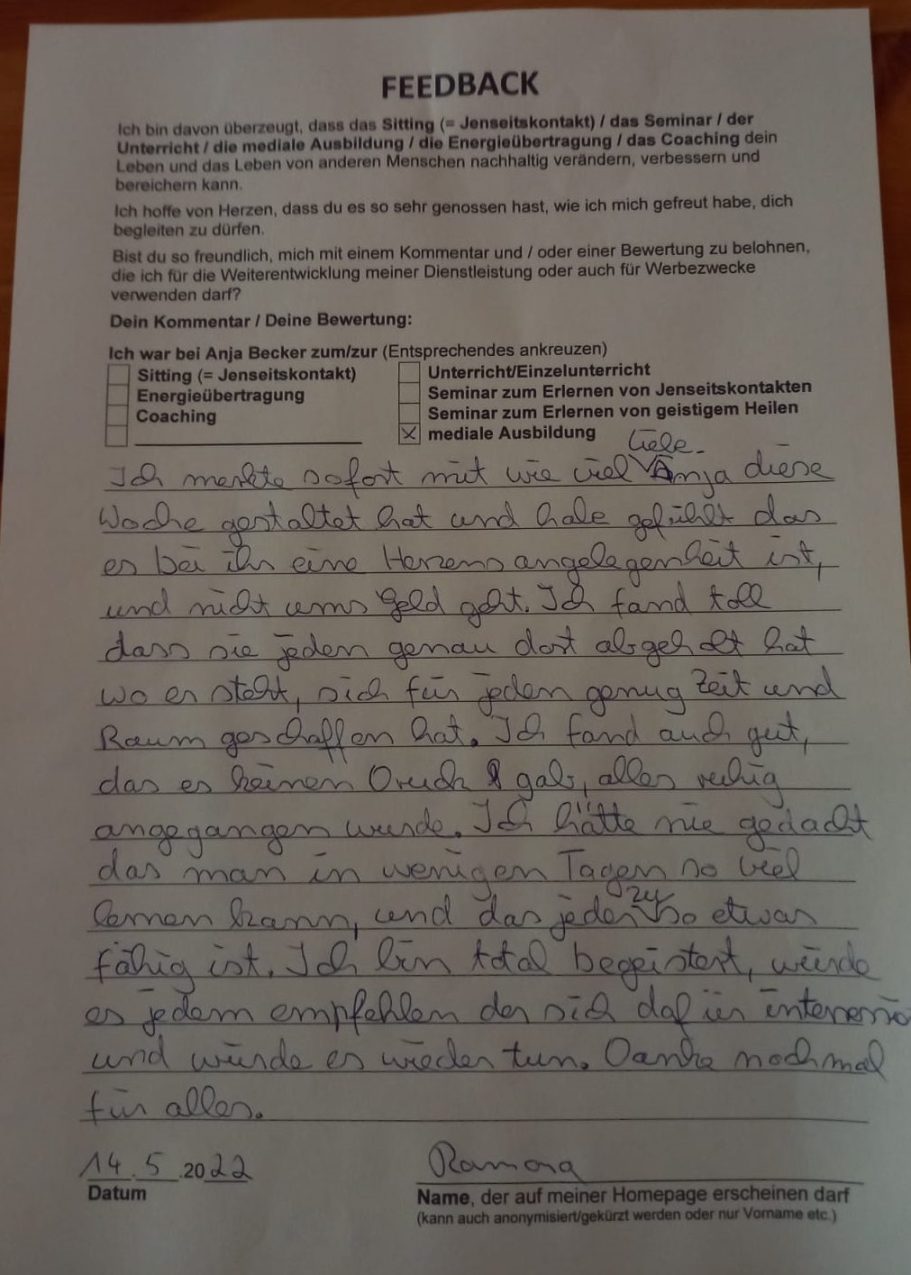 FEEDBACK
Ich bin davon überzeugt, dass das Sitting (= Jenseitskontakt) / das Seminar / der
Unterricht / die mediale Ausbildung / die Energieübertragung / das Coaching dein
Leben und das Leben von anderen Menschen nachhaltig verändern, verbessern und
bereichern kann.
Ich hoffe von Herzen, dass du es so sehr genossen hast, wie ich mich gefreut habe, dich
begleiten zu dürfen.
Bist du so freundlich, mich mit einem Kommentar und / oder einer Bewertung zu belohnen,
die ich für die Weiterentwicklung meiner Dienstleistung oder auch für Werbezwecke
verwenden darf?
Dein Kommentar / Deine Bewertung:
Ich war bei Anja Becker zum/zur (Entsprechendes ankreuzen)
Sitting (= Jenseitskontakt)
Energieübertragung
Coaching
Unterricht/Einzelunterricht
Seminar zum Erlernen von Jenseitskontakten
Seminar zum Erlernen von geistigem Heilen
☒ mediale Ausbildung
Ich merkte sofort mit wie viel Liebe Anja diese
Woche gestaltet hat und habe gefühlt das
es bei ihr eine Herzensangelegenheit ist,
und nicht ums Geld geht. Ich fand toll
dass sie jeden genau dort abgeholt hat
wo er steht, sich für jeden genug Zeit und
Raum geschaffen hat. Ich fand auch gut,
das es keinen Druck gab, alles ruhig
angegangen wurde. Ich hätte nie gedacht
das man in wenigen Tagen so viel
lernen kann, und das jeder zu so etwas
fähig ist. Ich bin total begeistert, würde
es jedem empfehlen der sich dafür
und würde es wieder tun. Danke nochmal
für alles.
14.5.2022
Datum
Ramona
Name, der auf meiner Homepage erscheinen darf
(kann auch anonymisiert/gekürzt werden oder nur Vorname etc.)